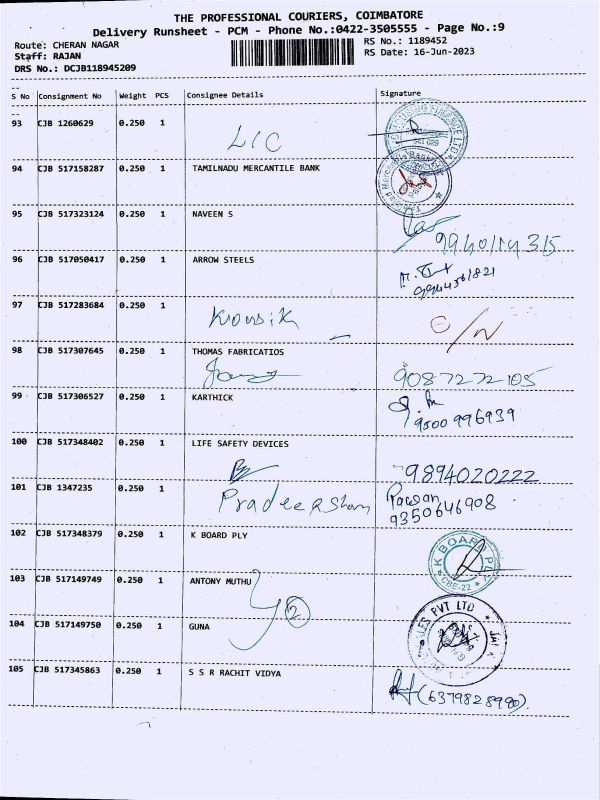 THE PROFESSIONAL COURIERS, COIMBATORE
Delivery Runsheet - PCM - Phone No.:0422-3505555 - Page No.:9
Route: CHERAN NAGAR
RS No.: 1189452
Staff: RAJAN
RS Date: 16-Jun-2023
DRS No.: DCJB118945209
S No Consignment No Weight PCS Consignee Details Signature
93 CJB 1260629 0.250 1
LIC
94 CJB 517158287 0.250 1 TAMILNADU MERCANTILE BANK
95 CJB 517323124 0.250 1 NAVEEN S
96 CJB 517050417 0.250 1 ARROW STEELS
97 CJB 517283684 0.250 1
Kousik
98 CJB 517307645 0.250 1 THOMAS FABRICATIOS
9087272105
99 CJB 517306527 0.250 1 KARTHICK
9500996939
100 CJB 517348402 0.250 1 LIFE SAFETY DEVICES
9894020222
101 CJB 1347235 0.250 1
9350646908
102 CJB 517348379 0.250 1 K BOARD PLY
K BOARD PLY
CBE-22
103 CJB 517149749 0.250 1 ANTONY MUTHU
2
104 CJB 517149750 0.250 1 GUNA
PVT LTD
105 CJB 517345863 0.250 1 S S R RACHIT VIDYA
(6379828990)